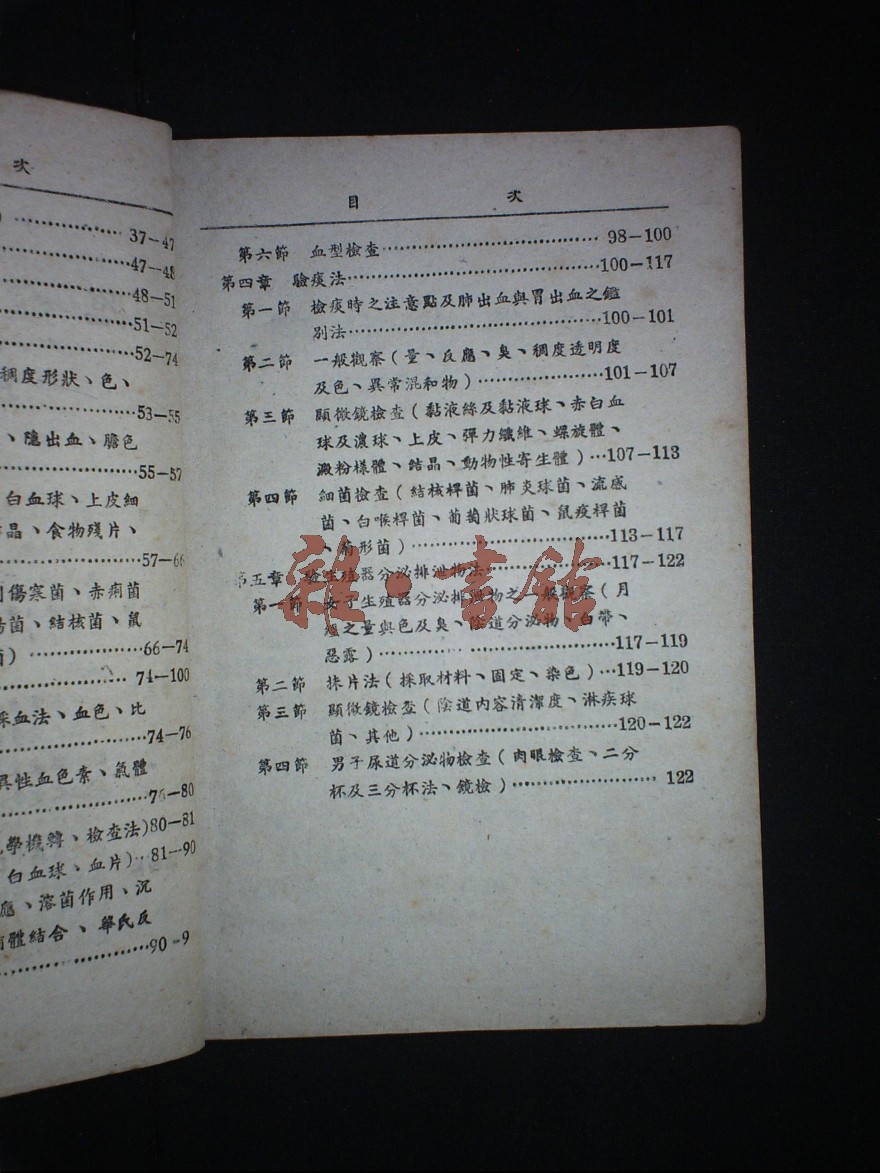 次
37—47
47—48
48—51
51—52
52—74
稠度形狀、色、
53—55
、隱出血、膽色
55—57
白血球、上皮細
晶、食物殘片、
57—66
傷寒菌、赤痢菌
菌、結核菌、鼠
66—74
74—100
采血法、血色、比
74—76
異性血色素、氣體
76—80
學機轉、檢查法)80—81
白血球、血片)…81—90
應、溶菌作用、沉
體結合、華氏反
90-9
目 次
第六節 血型檢查………… 98—100
第四章 驗痰法…………100—117
第一節 檢痰時之注意點及肺出血與胃出血之鑑
別法…………100—101
第二節 一般觀察(量、反應、臭、稠度透明度
及色、異常混和物)…………101—107
第三節 顯微鏡檢查(黏液絲及黏液球、赤白血
球及濃球、上皮、彈力纖維、螺旋體、
澱粉樣體、結晶、動物性寄生體)…107—113
第四節 細菌檢查(結核桿菌、肺炎球菌、流感
菌、白喉桿菌、葡萄狀球菌、鼠疫桿菌
、菊形菌)…………113—117
第五章 驗生殖器分泌排泄物法…………117—122
第一節 女子生殖器分泌排泄物之一般觀察(月
經之量與色及臭、陰道分泌物、白帶、
惡露)…………117—119
第二節 抹片法(採取材料、固定、染色)…119—120
第三節 顯微鏡檢查(陰道內容清潔度、淋疾球
菌、其他)…………120—122
第四節 男子尿道分泌物檢查(肉眼檢查、二分
杯及三分杯法、鏡檢)………… 122
雜·書館